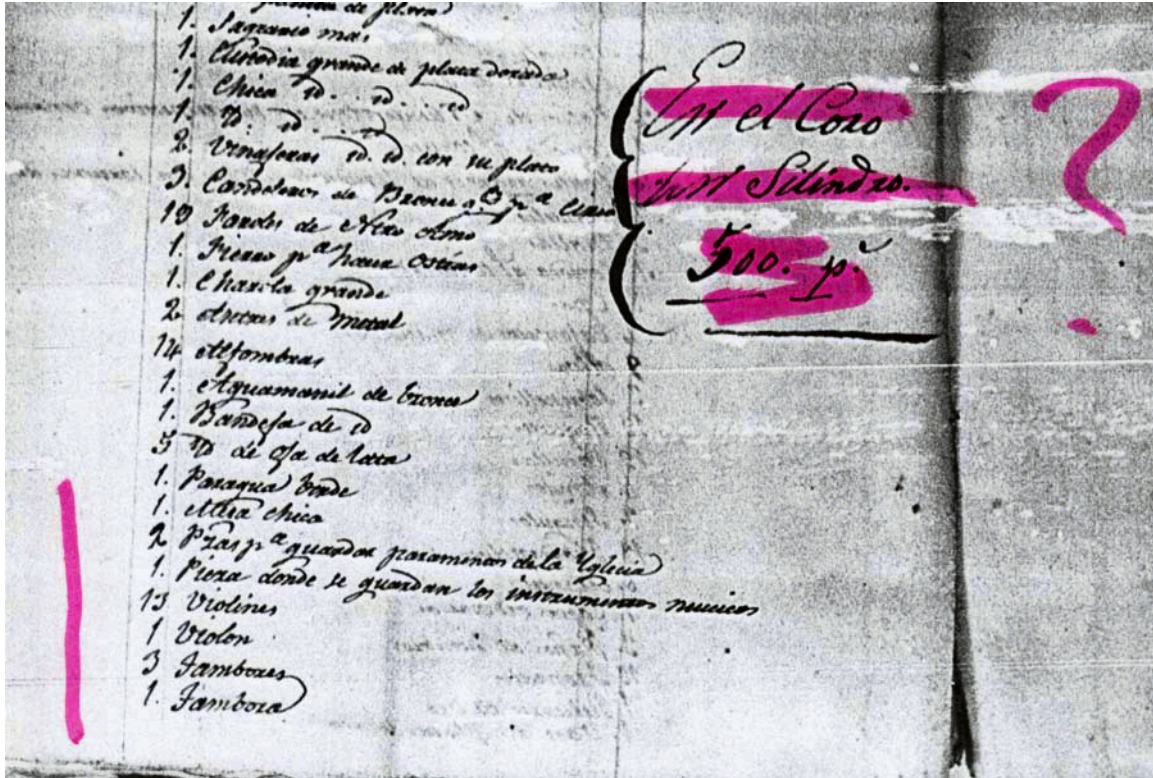 de
1. Sagrario mas
1. Custodia grande de plata dorada
1. Chica id. id. id
1. Yd. id.
2. Vinajeras id. id. con su plato
3. Candeleros de Bronce pª
10 Faroles de Ntro Amo
1. Fierro pª hacer Ostias
1. Charola grande
2. de metal
14 Alfombras
1. Aguamanil de bronce
1. Bandeja de id
5 Yd de oja de lata
1. Paragua berde
1. Mesa chica
2 Pzas pª guardar paramentos de la Yglecia
1. Pieza donde se guardan los instrumentos mucicos
13 Violines
1 Violon
3 Tambores
1. Tambora
En el Coro
un Silindro.
500. p.^s
?